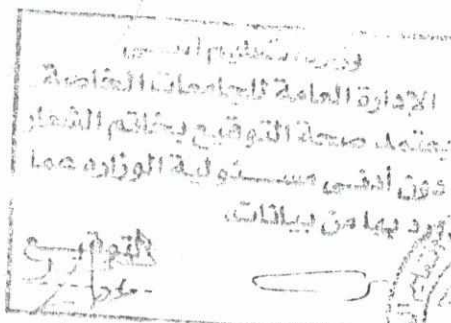 وزارة التعليم العالى
الإدارة العامة للجامعات الخاصة
يعتمد صحة التوقيع بخاتم الشعار
دون أدنى مسئولية الوزارة عما
ورد بها من بيانات
التوقيع